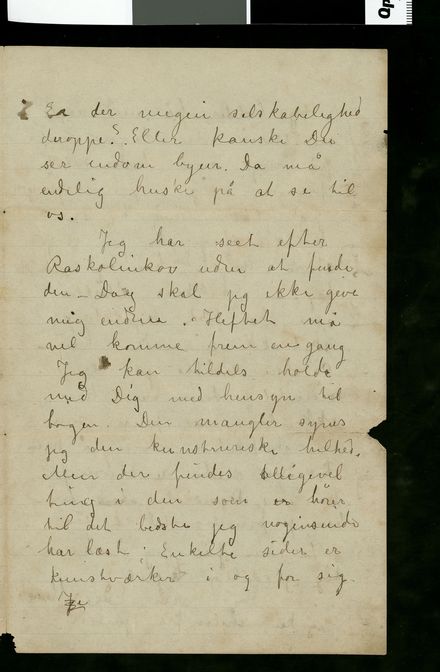 Er der megen selskabelighed
deroppe? Eller kanske Du
ser indom byen. Da må
endelig huske på at se til
os.
Jeg har seet efter
Raskolnikov uden at finde
den – Dog skal jeg ikke geve
mig endnu. Heftet må
vel komme frem engang
Jeg kan tildels holde
med Dig med hensyn til
bogen. Den mangler synes
jeg den kunstneriske helhed.
Men der findes alligevel
ting i den som er hører
til det bedste jeg nogensinde
har læst; Enkelte sider er
kunstværker i og for sig.